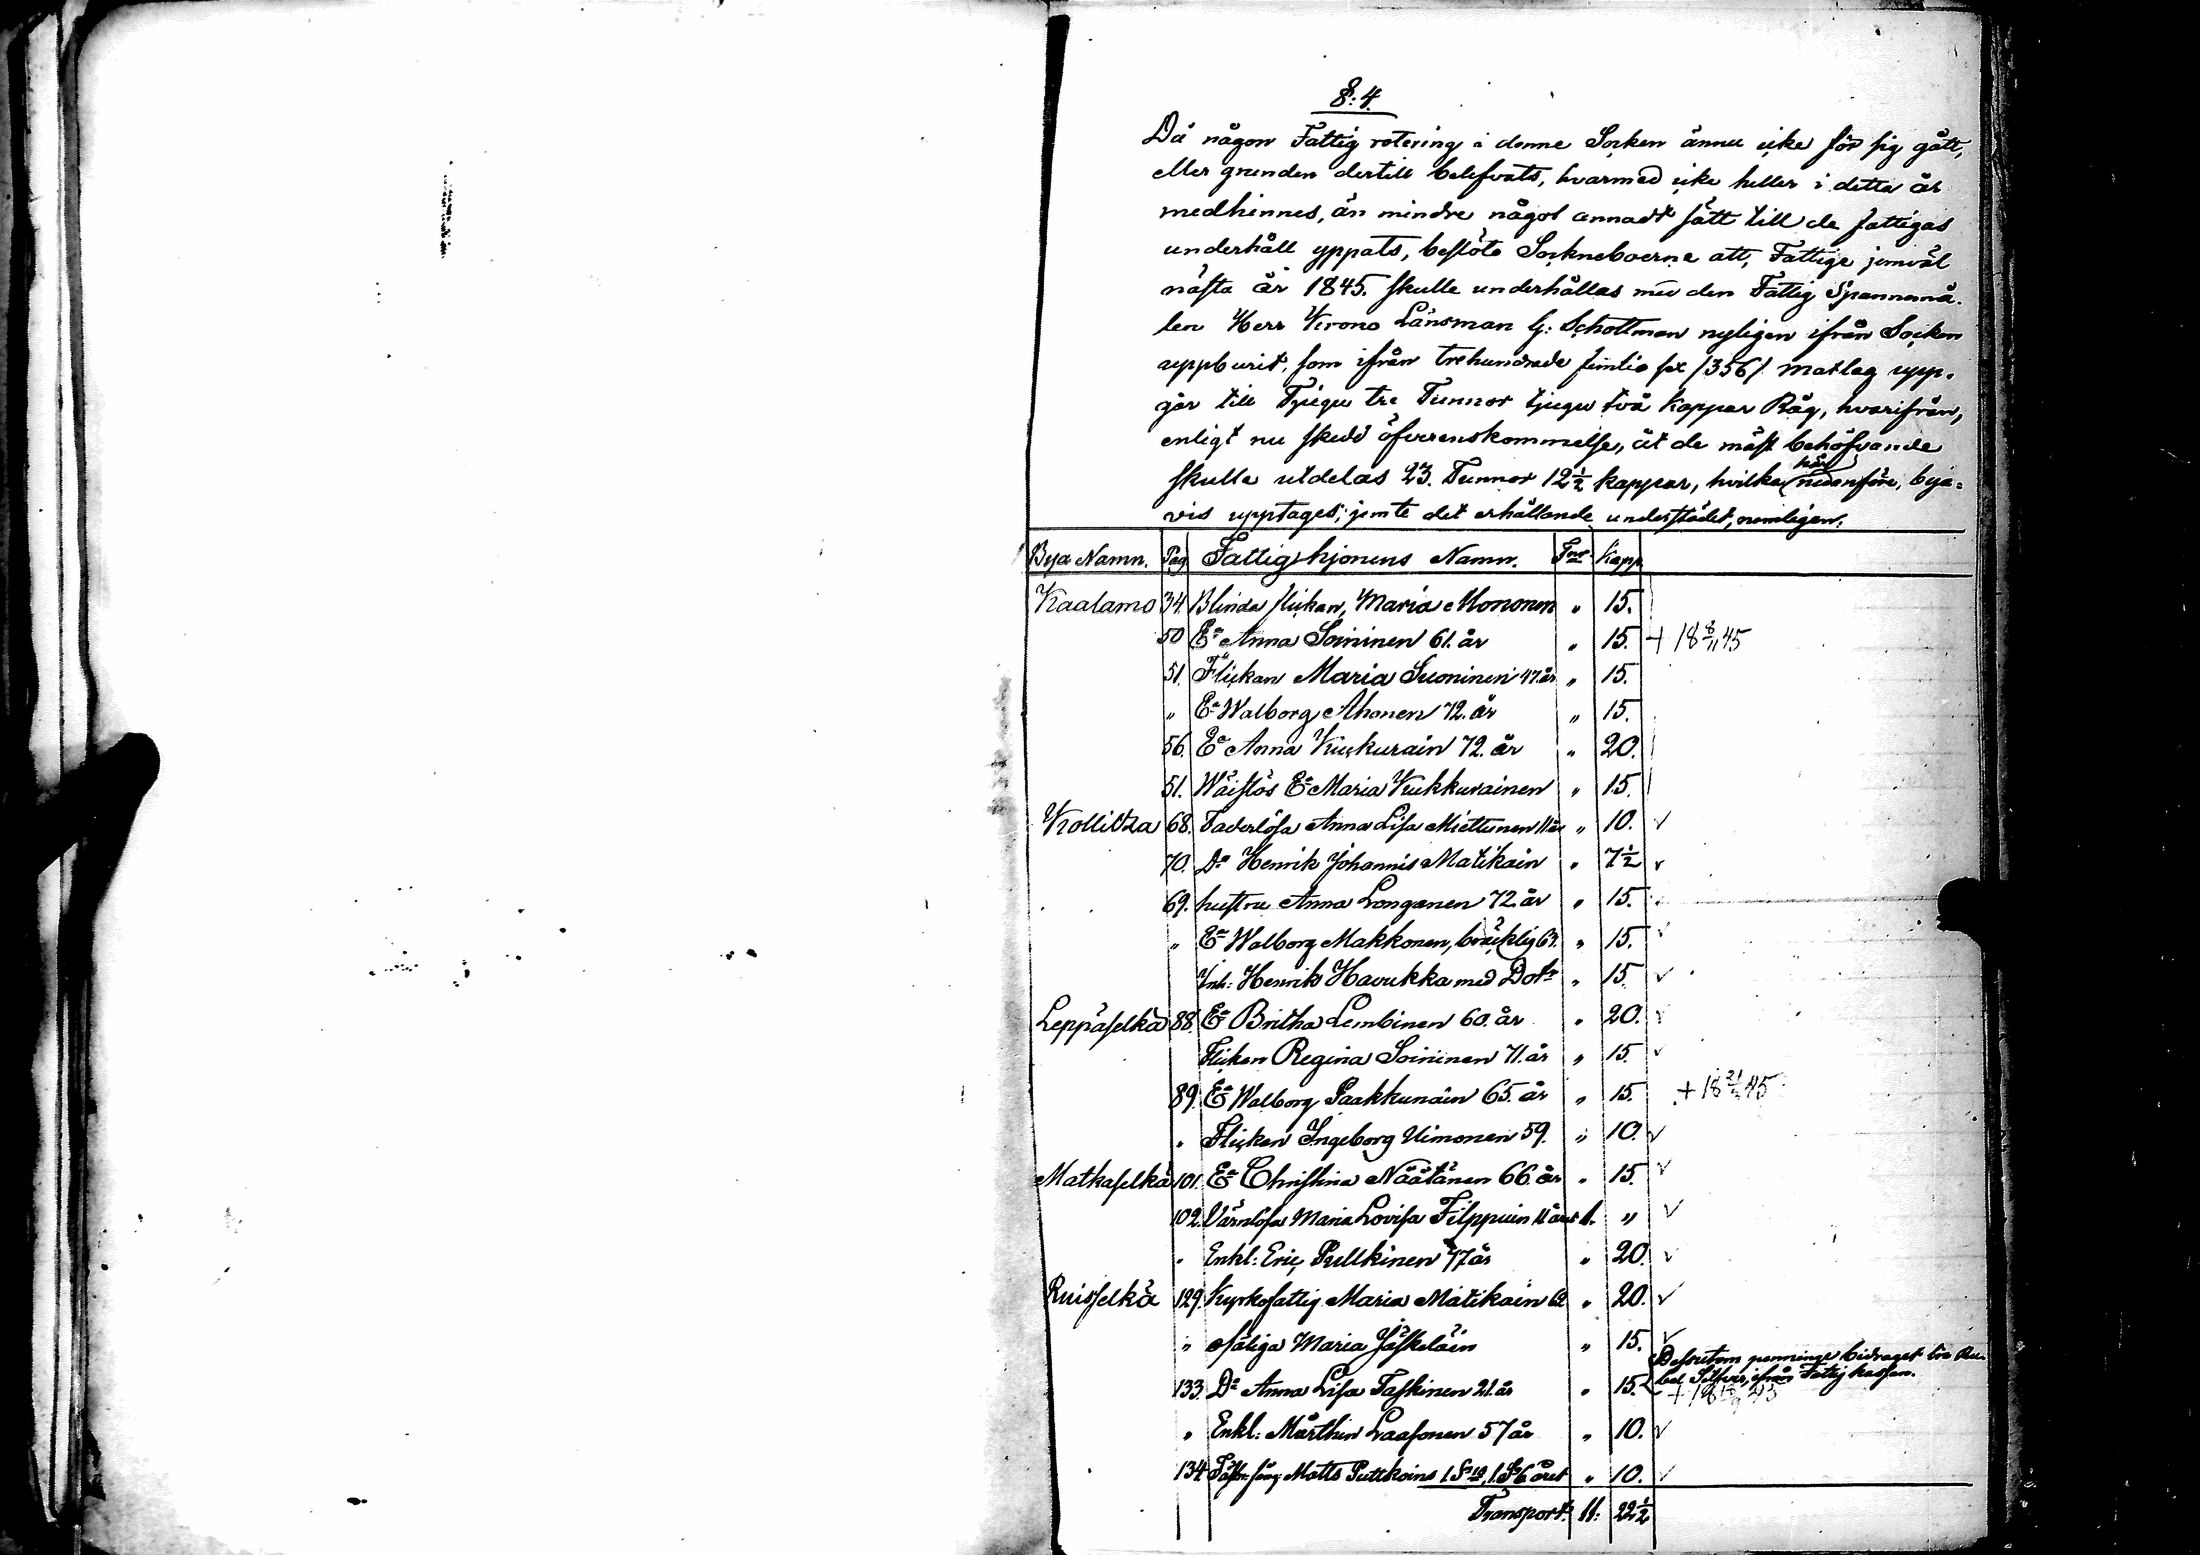 §: 4.
Då någon Fattig rotering i denne Socken ännu icke för sig gått,
eller grunden dertill belefvats, hvarmed icke heller i detta år
medhinnes, än mindre något annadt sätt till de fattigas
underhåll yppats, beslöto Sockneboerne att, Fattige jemväl
nästa år 1845. skulle underhållas med den Fattig Spannemå-
len Herr Krono Länsman G: Schottman nyligen ifrån Socken
uppburit, som ifrån trehundrade femtio sex /356/ matlag upp-
går till Tjugu tre Tunnor tjugu två Kappar Råg, hvarifrån,
enligt nu skedd öfverenskommelse, åt de mäst behöfvande
skulle utdelas 23. Tunnor 12½ kappar, hvilka här nedanföre, bya-
vis upptages; jemte det erhållande understödet, nemligen:
Bya Namn. Pag Fattighjonens Namn. Tnr Kapp
Kaalamo 34. Blinda flickan, Maria Mononen " 15.
50 Ea Anna Soininen 61. år " 15. + 18 8/11 45
51. Flickan Maria Suoninen 47. år " 15.
" Ea Walborg Ahonen 72. år " 15.
56. Ea Anna Kuckurain 72. år " 20.
51. Wäislös Ea Maria Kukkurainen " 15.
Kollitza 68. Faderlösa Anna Lisa Miettunen 11 år " 10. ✓
70. Do Henrik Johannis Matikain " 7½ ✓
69. hustru Anna Longanen 72. år " 15.
" Ea Walborg Makkonen, bräcklig 63. " 15. ✓
Inh: Henrik Havukka med Dotr " 15 ✓
Leppäselkä 88. Ea Britha Lembinen 60. år " 20. ✓
Flickan Regina Soininen 71. år " 15. ✓
89. Ea Walborg Paakkunain 65. år " 15. + 18 21/3 45
" Flickan Ingeborg Uimonen 59. " 10. ✓
Matkaselkä 101. Ea Christina Näätänen 66. år " 15. ✓
102. Värnlösa Maria Lovisa Filppuin 11 året 1. " ✓
" Enkl: Eric Pullkinen 77 år " 20. ✓
Ruisselkä 129. Kyrkofattig Maria Matikain 62 " 20. ✓
" ofäliga Maria Jäskeläin " 15. ✓
133. Do Anna Lisa Taskinen 21. år " 15. Dessutom penninge bidraget tre Ru-
bel Silfver, ifrån Fattig kassan.
" Enkl: Mårthin Laasonen 57 år " 10. ✓
134. Matts Puttkoins 1 S 10, 1 S 6 året " 10. ✓
Transport. 11: 22½